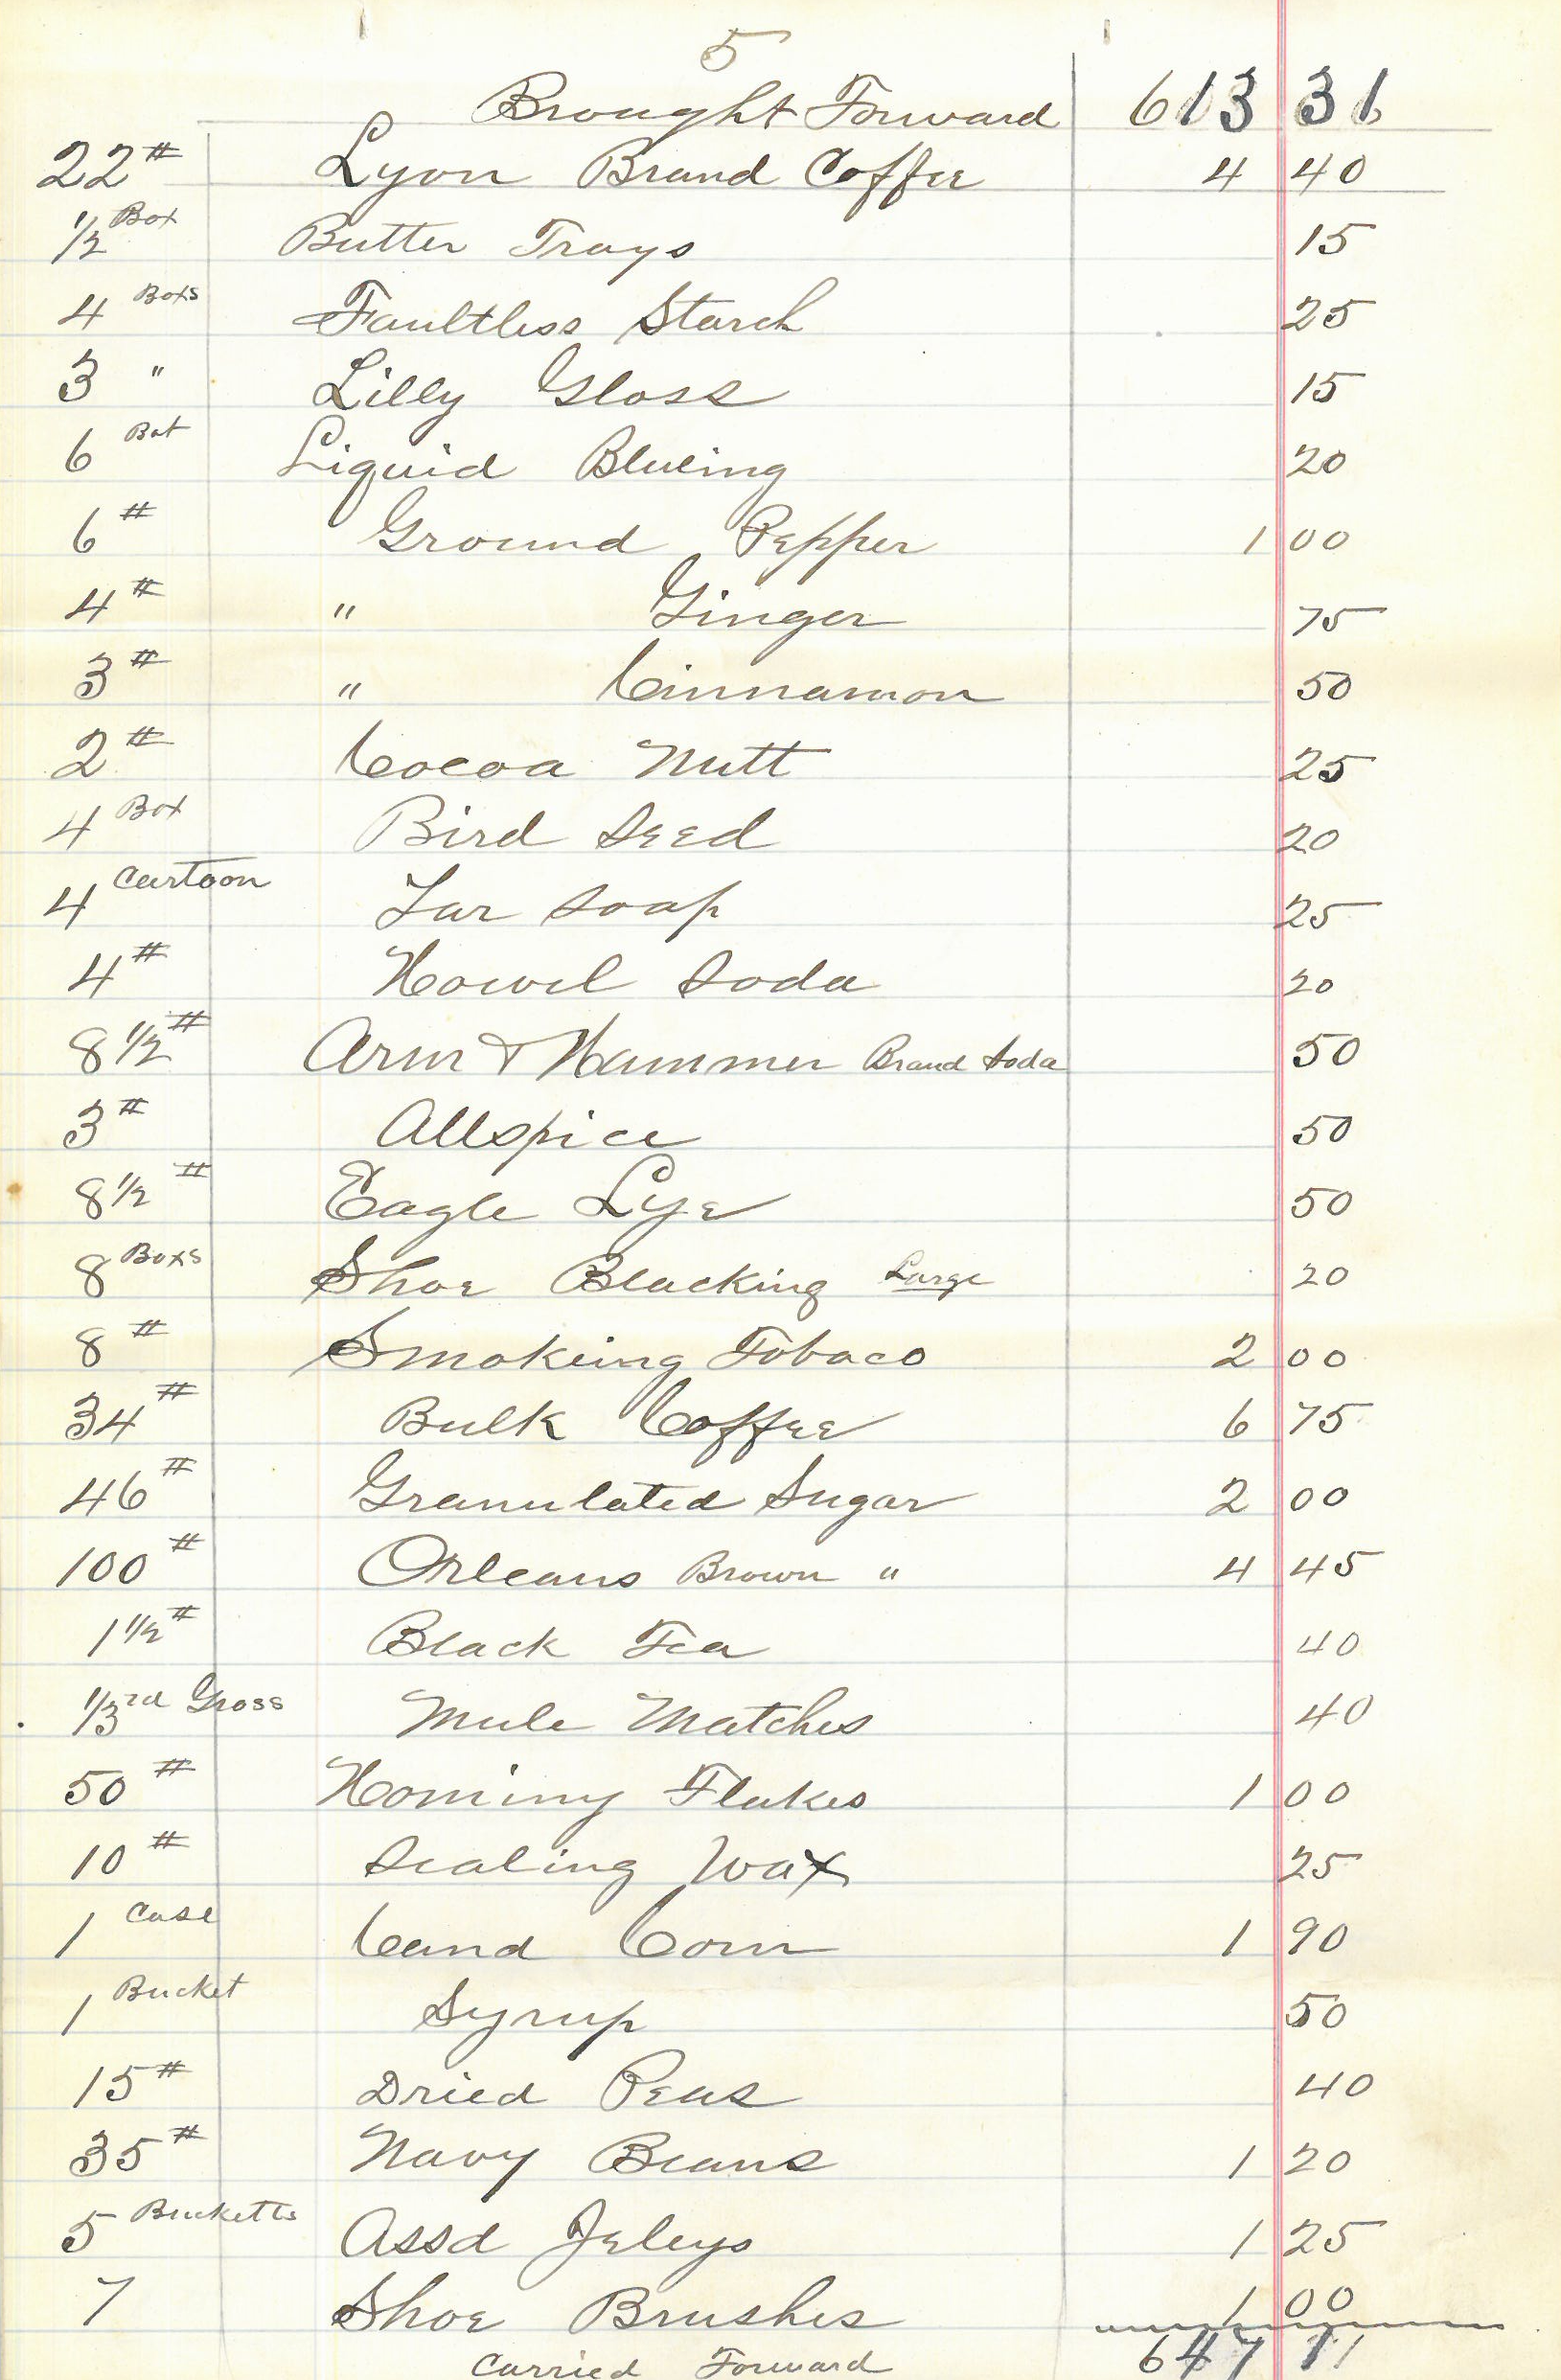 5
Brought Forward 613 31
22# Lyon Brand Coffee 4 40
1/2 Box Butter Trays 15
4 Boxs Faultless Starch 25
3 " Lilly Gloss 15
6 Bot Liquid Blueing 20
6# Ground Pepper 1 00
4# " Ginger 75
3# " Cinnamon 50
2# Cocoa Nutt 25
4 Box Bird Seed 20
4 Cartoon Tar Soap 25
4# Howel Soda 20
8 1/2# Arm & Hammer Brand Soda 50
3# Allspice 50
8 1/2# Eagle Lye 50
8 Boxs Shoe Blacking Large 20
8# Smokeing Tobaco 2 00
34# Bulk Coffee 6 75
46# Granulated Sugar 2 00
100# Orleans Brown " 4 45
1 1/2# Black Tea 40
1/3rd Gross Mule Matches 40
50# Hominy Flakes 1 00
10# Sealing Wax 25
1 Case Cand Corn 1 90
1 Bucket Syrup 50
15# Dried Peas 40
35# Navy Beans 1 20
5 Bucketts Assd Jeleys 1 25
7 Shoe Brushes 1 00
Carried Forward 647 11